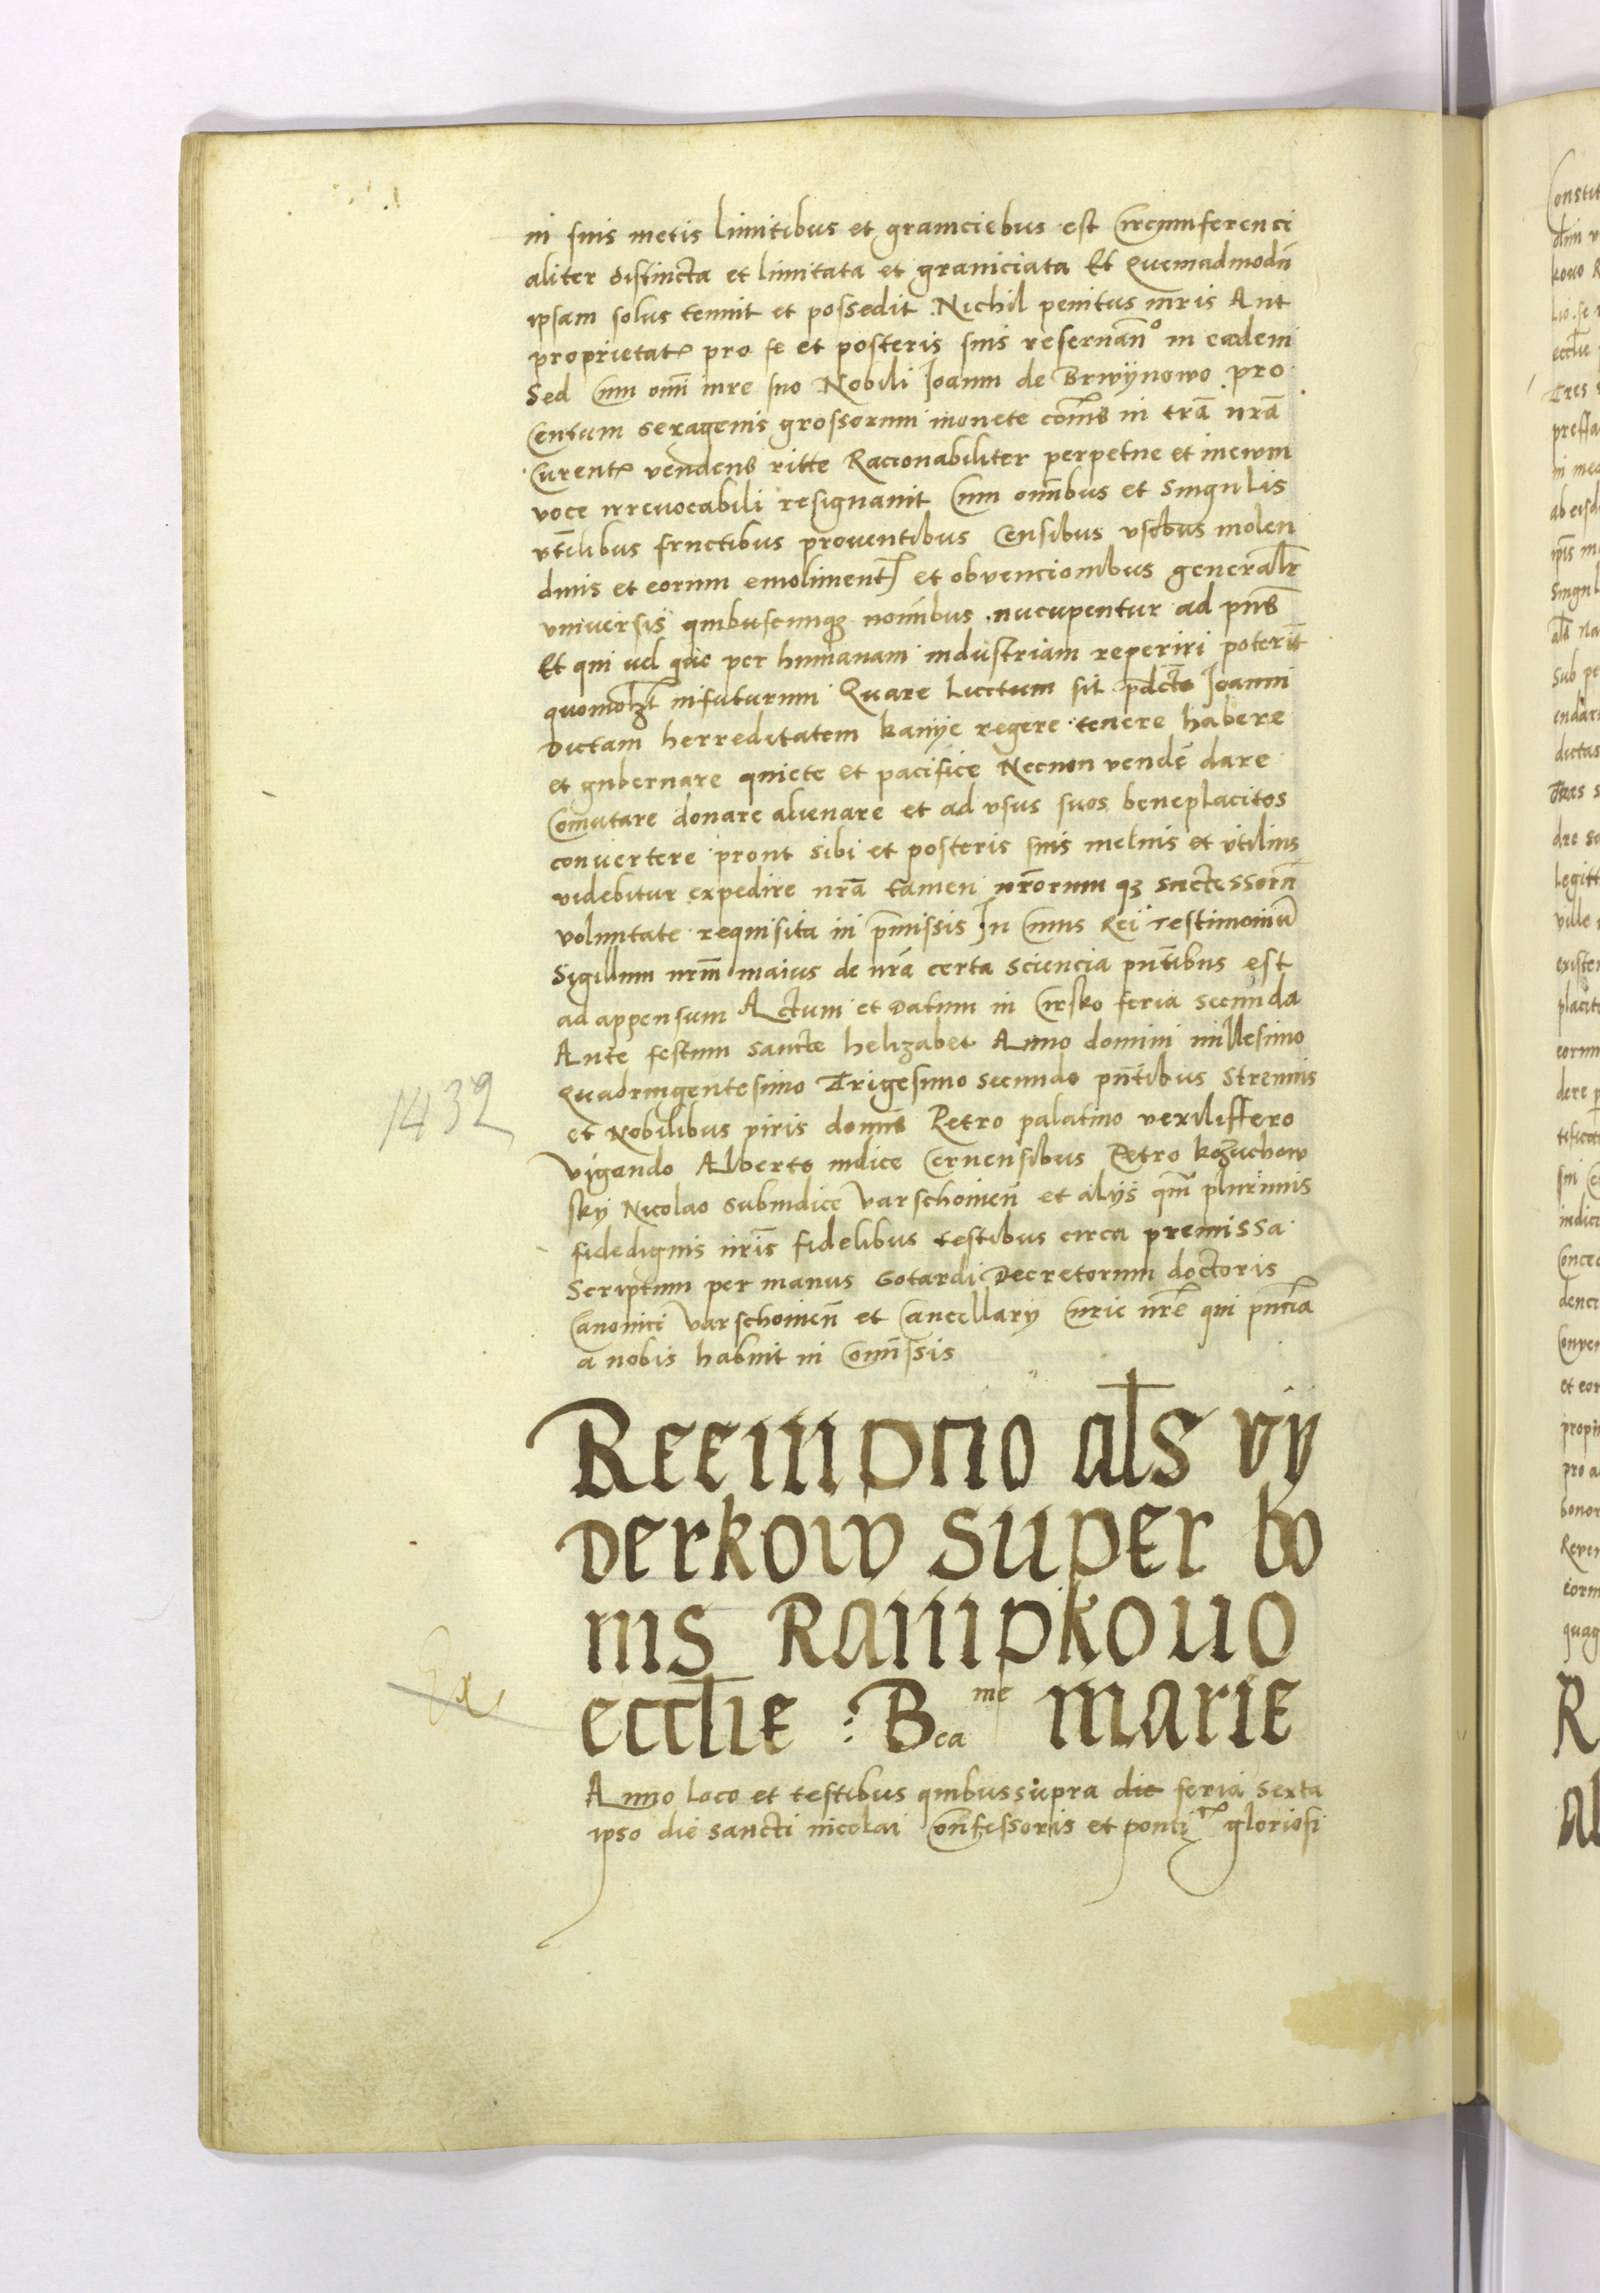 in suis metis limitibus et graniciebus est circumferenci
aliter distincta et limitata et graniciata Et Quemadmodū
ipsam solus tenuit et possedit. Nichil penitus iuris Aut
proprietat pro se et posteris suis reseruan̄° in eadem
Sed cum om̄i iure suo Nobili Joanni de Brwÿnowo pro
Centum sexagenis grossorum monete com̄s in tr̄a nr̄a
Curent vendens ritte Racionabiliter perpetue et in ewm
voce irreuocabili resignauit Cum om̄ibus et Singulis
vt̄ilibus fructibus prouentibus Censibus vsibus molen
dinis et eorum emoliment et obvencionibus general̄r
vniuersis̈ quibuscunqȝ nominibus nucupentur ad pn̄s
Et qui vel que per humanam industriam reperiri poterit
quomol̄t infuturum Quare Licitum sit pdcto Joanni
Dictam herreditatem kanÿe regere tenere habere
et gubernare quiete et pacifice Necnon vendē dare
Com̄utare donare alienare et ad vsus suos beneplacitos
convertere prout sibi et posteris suis melius et vtilius
videbitur expedire nr̄a tamen nr̄orum qȝ successorū
voluntate requisita in p̄missis In Cuius Rei testimoniū
Sigillum nr̄m maius de nr̄a certa sciencia pn̄tibus est
ad appensum Actum et Datum in Cirsko feria secunda
Ante festum sancte helizabet Anno domini millesimo
Quadringentesimo Trigesimo secundo pn̄tibus Strenuis
1432
et Nobilibus viris domīs Petro palatino vexiliffero
Vigando Alberto iudice Cernensibus Petro kozuchow
skÿ Nicolao subiudice Varschouien̄ et alÿs qm̄ plurimis
fidedignis nr̄is fidelibus testibus circa premissa
Scriptum per manus Gotardi Decretorum doctoris
Canonici Varschouien̄ et Cancellarÿ Curie nr̄e qui pn̄cia
a nobis habuit in Com̄issis
Reempcio al̄s vÿ
Derkow super bo
nis Rampkouo
eccl̄ie : Bea me marie
Anno loco et testibus quibussupra die feria sexta
ipso die sancti nicolai Confessoris et ponti gloriosi